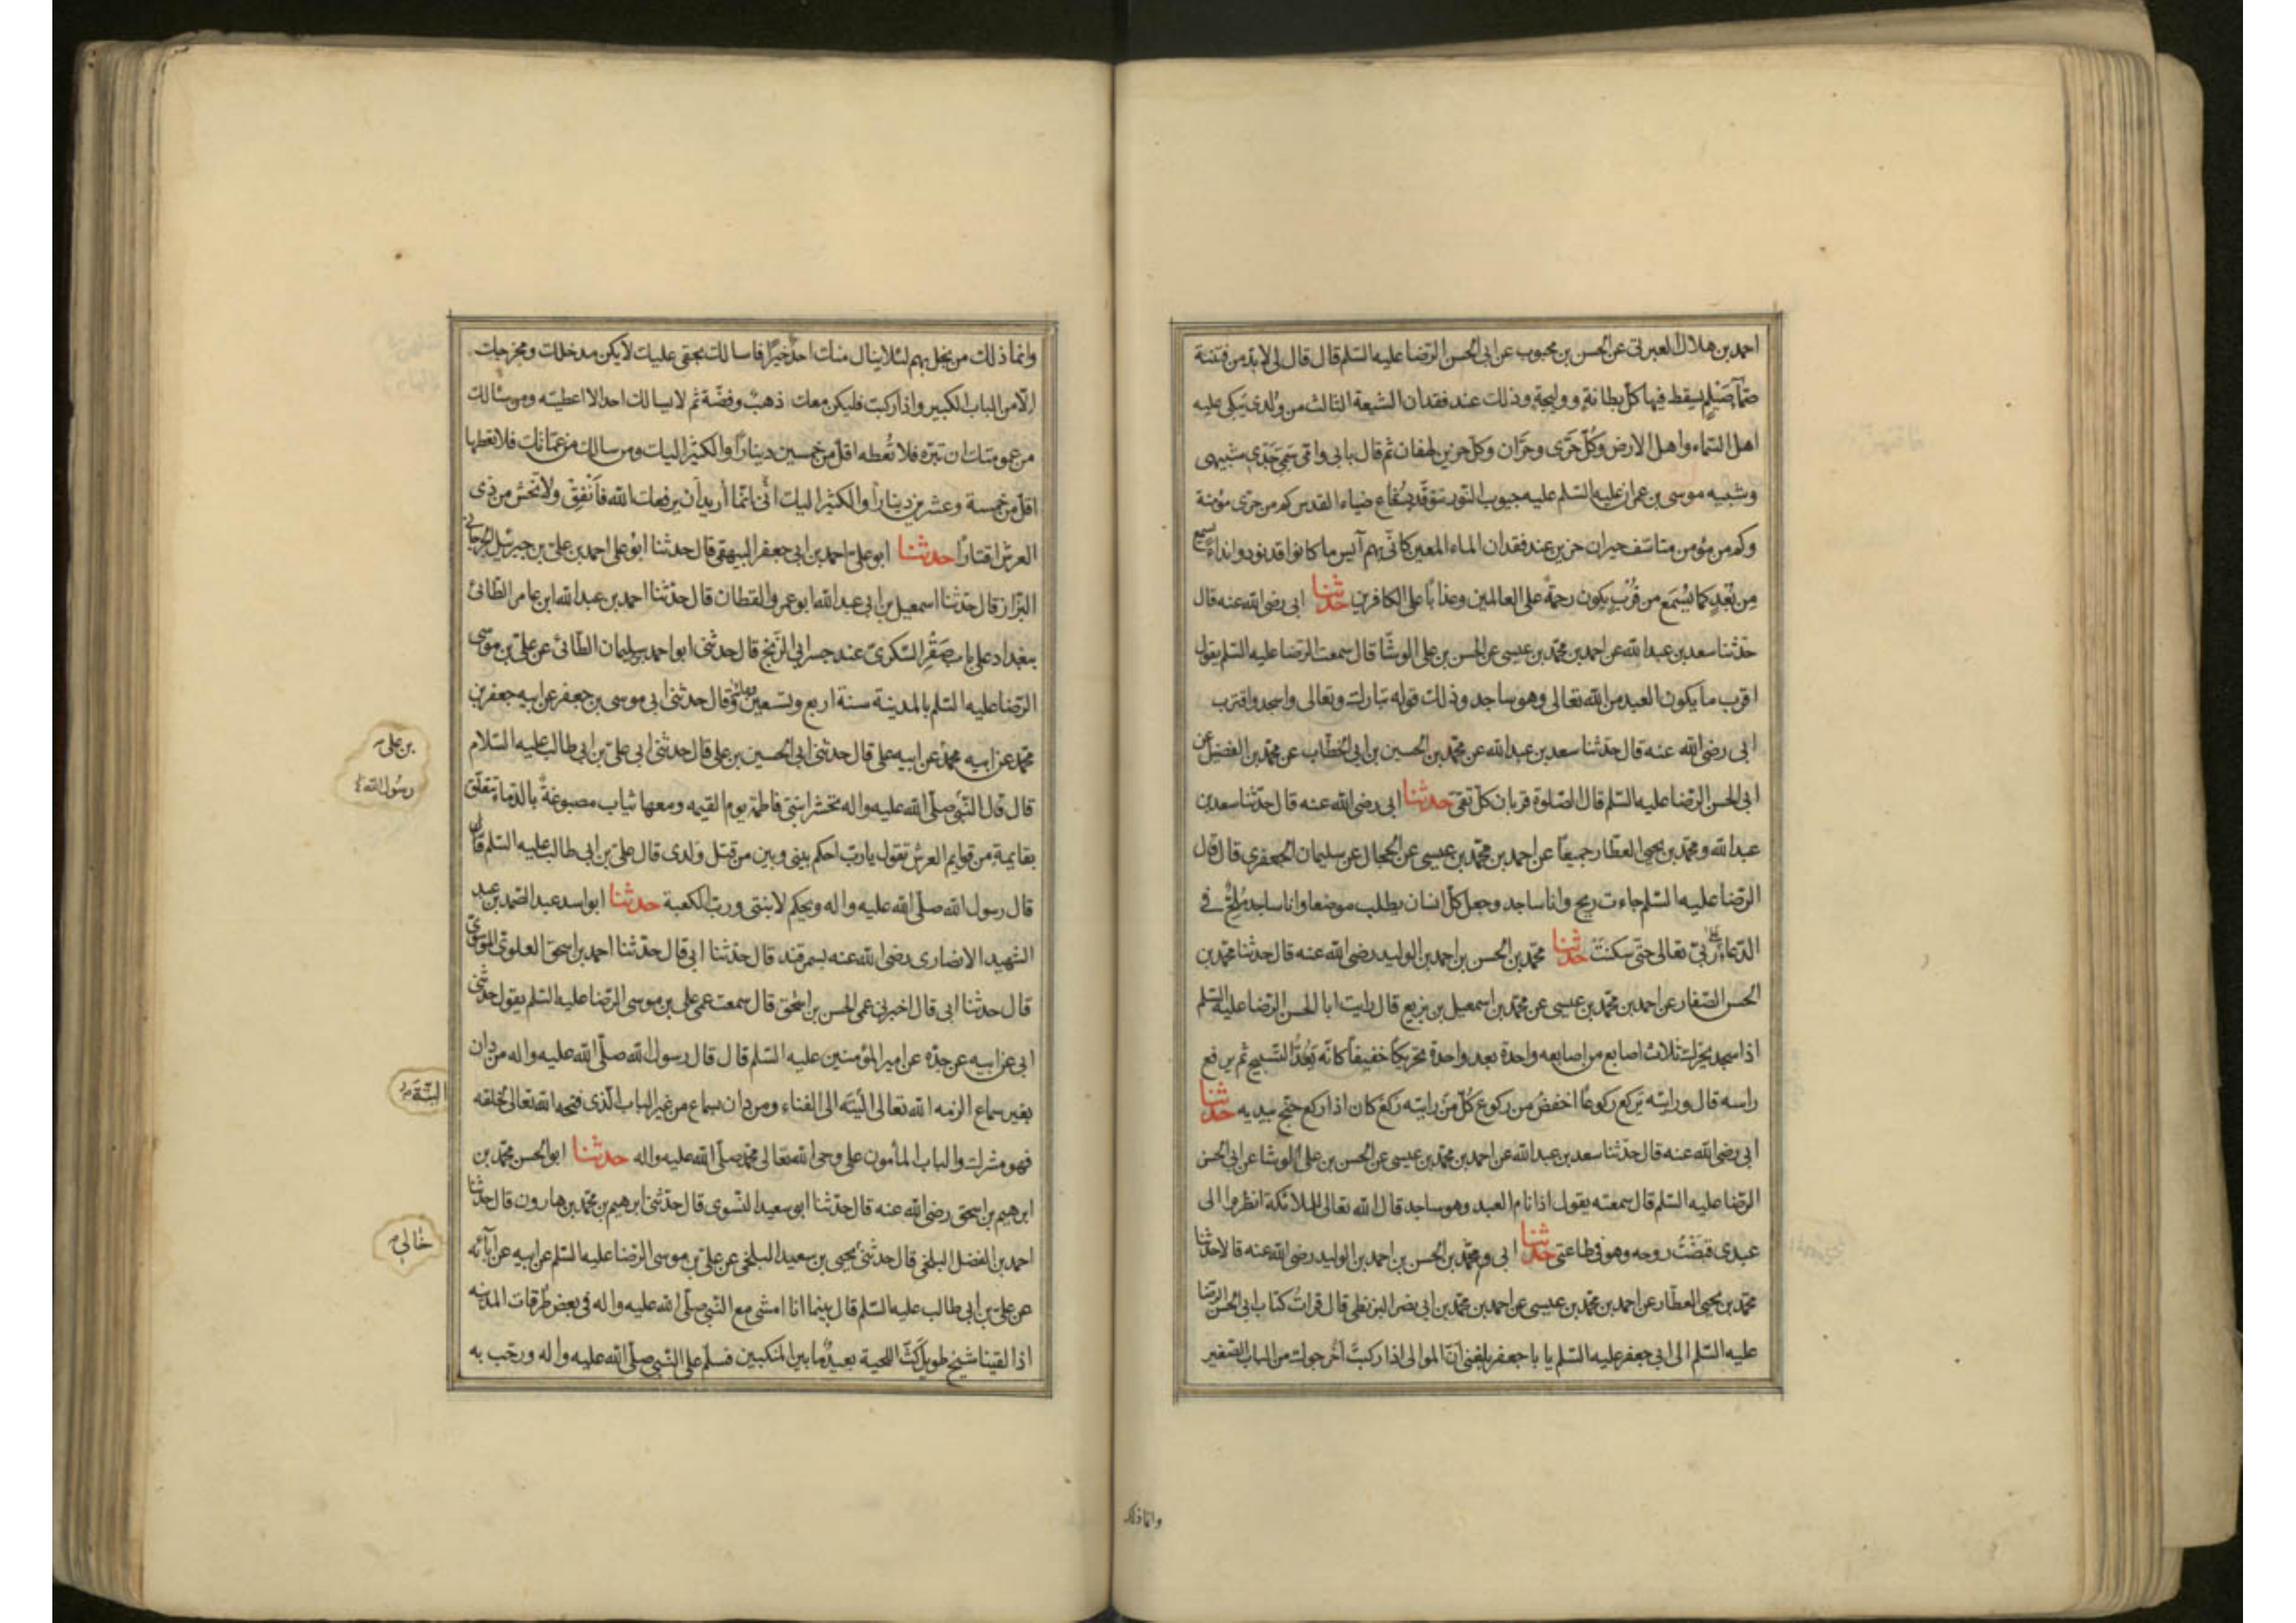 احمد بن هلال العبرتى عن الحسن بن محبوب عن ابى الحسن الرضا عليه السلم قال قال لى لا بد من فتنة
صمآء صيلم يسقط فيها كل بطانة ووليجة وذلك عند فقدان الشيعة الثالث من ولدى يبكى عليه
اهل السماء واهل الارض وكل حرى وحران وكل حزين لهفان ثم قال بابى وامى سمى جدى شبيهى
وشبيه موسى بن عمران عليه السلم عليه جيوب النور تتوقد بشعاع ضياء القدس كم من حرى مؤمنة
وكم من مؤمن متاسف حيران حزين عند فقدان الماء المعين كانى بهم آيس ما كانوا قد نودوا نداء يسمع
من بعد كما يسمع من قرب يكون رحمة على العالمين وعذابا على الكافرين حدثنا ابى رضى الله عنه قال
حدثنا سعد بن عبد الله عن احمد بن محمد بن عيسى عن الحسن بن على الوشا قال سمعت الرضا عليه السلم يقول
اقرب ما يكون العبد من الله تعالى وهو ساجد وذلك قوله تبارك وتعالى واسجد واقترب
ابى رضى الله عنه قال حدثنا سعد بن عبد الله عن محمد بن الحسين بن ابى الخطاب عن محمد بن الفضيل عن
ابى الحسن الرضا عليه السلم قال الصلوة قربان كل تقى حدثنا ابى رضى الله عنه قال حدثنا سعد بن
عبد الله ومحمد بن يحيى العطار جميعا عن احمد بن محمد بن عيسى عن الحجال عن سليمان الجعفرى قال قال
الرضا عليه السلم جاءت ريح وانا ساجد وجعل كل انسان يطلب موضعا وانا ساجد ملح فى
الدعاء على ربى تعالى حتى سكنت حدثنا محمد بن الحسن بن احمد بن الوليد رضى الله عنه قال حدثنا محمد بن
الحسن الصفار عن احمد بن محمد بن عيسى عن محمد بن اسمعيل بن بزيع قال رايت ابا الحسن الرضا عليه السلم
اذا سجد يحرك ثلاث اصابع من اصابعه واحدة بعد واحدة تحريكا خفيفا كانه يعد التسبيح ثم يرفع
راسه قال ورايته يركع ركوعا اخفض من ركوع كل من رايته ركع كان اذا ركع جنح بيديه حدثنا
ابى رضى الله عنه قال حدثنا سعد بن عبد الله عن احمد بن محمد بن عيسى عن الحسن بن على الوشا عن ابى الحسن
الرضا عليه السلم قال سمعته يقول اذا نام العبد وهو ساجد قال الله تعالى للملائكة انظروا الى
عبدى قبضت روحه وهو فى طاعتى حدثنا ابى ومحمد بن الحسن بن احمد بن الوليد رضى الله عنه قالا حدثنا
محمد بن يحيى العطار عن احمد بن محمد بن عيسى عن احمد بن محمد بن ابى نصر البزنطى قال قرات كتاب ابى الحسن الرضا
عليه السلم الى ابى جعفر عليه السلم يا با جعفر بلغنى ان الموالى اذا ركبت اخرجوك من الباب الصغير
وانما ذلك
وانما ذلك من بخل بهم لئلا ينال منك احد خيرا فاسالك بحقى عليك لا يكن مدخلك ومخرجك
الا من الباب الكبير واذا ركبت فليكن معك ذهب وفضة ثم لا يسالك احد الا اعطيته ومن سالك
من عمومتك ان تبره فلا تعطه اقل من خمسين دينارا والكثير اليك ومن سالك من عماتك فلا تعطها
اقل من خمسة وعشرين دينارا والكثير اليك انى انما أريد أن يرفعك الله فأنفق ولا تخش من ذى
العرش اقتارا حدثنا ابو على احمد بن ابى جعفر البيهقى قال حدثنا ابو على احمد بن على بن جبرئيل الجرجانى
البزاز قال حدثنا اسمعيل بن ابى عبد الله ابو عمرو القطان قال حدثنا احمد بن عبد الله ابن عامر الطائى
ببغداد على باب صقر السكرى عند جسر ابى الزنج قال حدثنى ابو احمد بن سليمان الطائى عن على بن موسى
الرضا عليه السلم بالمدينة سنة اربع وتسعين ومائة قال حدثنى ابى موسى بن جعفر عن ابيه جعفر بن
محمد عن ابيه محمد عن ابيه على قال حدثنى ابى الحسين بن على قال حدثنى ابى على بن ابى طالب عليه السلام
بن على
قال قال النبى صلى الله عليه واله تحشر ابنتى فاطمة يوم القيمه ومعها ثياب مصبوغة بالدماء تتعلق
رسول الله
بقايمة من قوايم العرش تقول يا رب احكم بينى وبين من قتل ولدى قال على بن ابى طالب عليه السلم قال
قال رسول الله صلى الله عليه واله ويحكم لابنتى ورب الكعبة حدثنا ابو اسد عبد الصمد بن عبد
الشهيد الانصارى رضى الله عنه بسمرقند قال حدثنا ابى قال حدثنا احمد بن اسحق العلوى الموسوى
قال حدثنا ابى قال اخبرنى عمى الحسن بن اسحق قال سمعت عمى على بن موسى الرضا عليه السلم يقول حدثنى
ابى عن ابيه عن جده عن امير المؤمنين عليه السلم قال قال رسول الله صلى الله عليه واله من دان
بغير سماع الزمه الله تعالى البته الى الفناء ومن دان بسماع من غير الباب الذى فتحه الله تعالى لخلقه
البتة
فهو مشرك والباب المأمون على وحى الله تعالى محمد صلى الله عليه واله حدثنا ابو الحسن محمد بن
ابرهيم بن اسحق رضى الله عنه قال حدثنا ابو سعيد النسوى قال حدثنى ابرهيم بن محمد بن هارون قال حدثنا
احمد بن الفضل البلخى قال حدثنى يحيى بن سعيد البلخى عن على بن موسى الرضا عليه السلم عن ابيه عن آبائه
خالى
عن على بن ابى طالب عليه السلم قال بينما انا امشى مع النبى صلى الله عليه واله فى بعض طرقات المدينه
اذا لقينا شيخ طويل كث اللحية بعيد ما بين المنكبين فسلم على النبى صلى الله عليه واله ورحب به